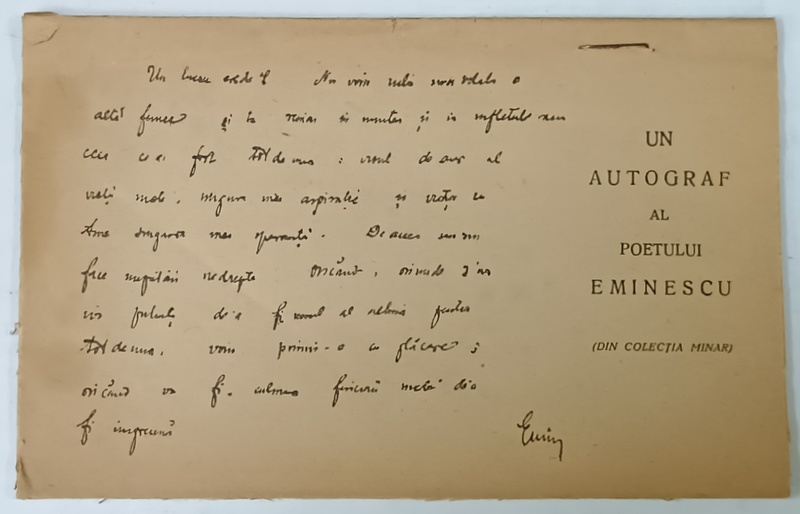 Un lucru crede-l Nu voiu iubi niciodata o
altă femee și tu rămâi în mintea și în sufletul meu
ceea ce ai fost totdeauna: visul de aur al
vieții mele, singura mea aspirație și viața cu
tine singura mea speranță. De aceea nu-mi
face imputări nedrepte oricând, oriunde
vei putea de a fi al
totdeauna, voiu primi-o cu plăcere;
oricând va fi culmea fericirii mele de a
fi împreună
Emin
UN
AUTOGRAF
AL
POETULUI
EMINESCU
(DIN COLECȚIA MINAR)